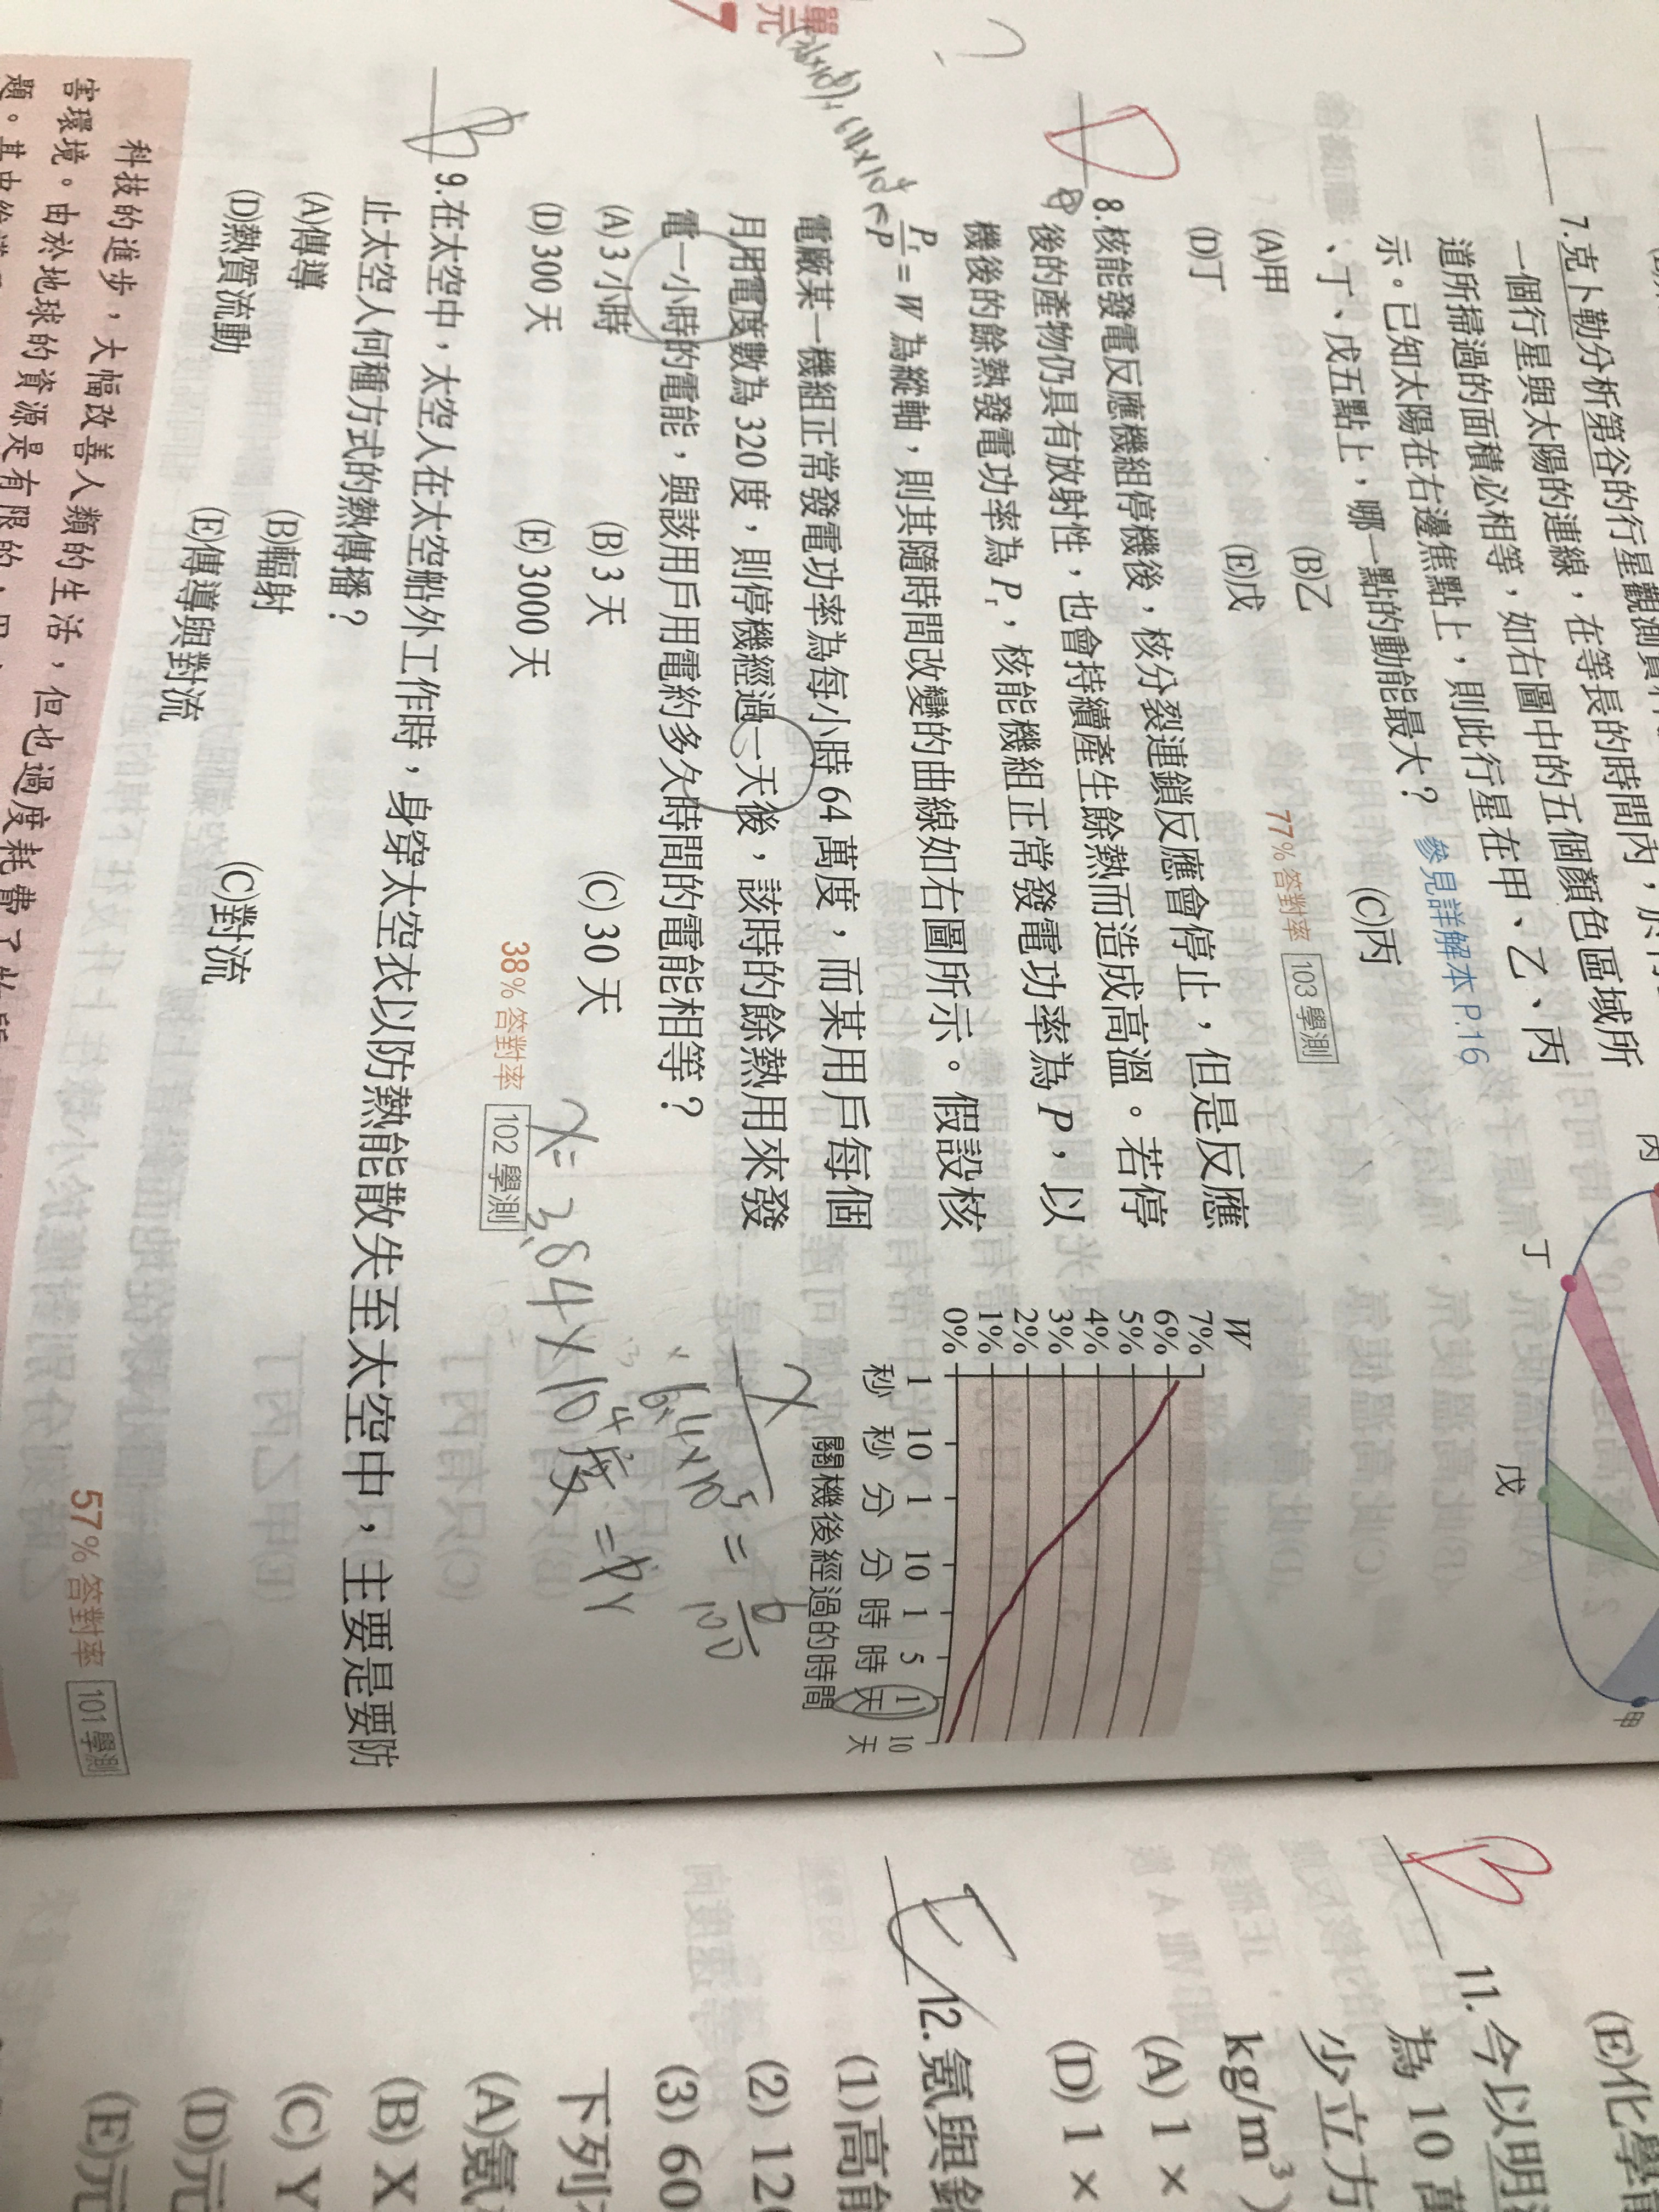 單元
7
7.克卜勒分析第谷的行星觀測資料
一個行星與太陽的連線，在等長的時間內，於
道所掃過的面積必相等，如右圖中的五個顏色區域所
示。已知太陽在右邊焦點上，則此行星在甲、乙、丙
、丁、戊五點上，哪一點的動能最大？ 參見詳解本 P.16
(A)甲 (B)乙 (C)丙
(D)丁 (E)戊 77% 答對率 103 學測
丙
丁
戊
甲
D
8.核能發電反應機組停機後，核分裂連鎖反應會停止，但是反應
後的產物仍具有放射性，也會持續產生餘熱而造成高溫。若停
機後的餘熱發電功率為 Pr，核能機組正常發電功率為 P，以
Pr/P = W 為縱軸，則其隨時間改變的曲線如右圖所示。假設核
電廠某一機組正常發電功率為每小時 64 萬度，而某用戶每個
月用電度數為 320 度，則停機經過一天後，該時的餘熱用來發
電一小時的電能，與該用戶用電約多久時間的電能相等？
(A) 3 小時 (B) 3 天 (C) 30 天
(D) 300 天 (E) 3000 天 38% 答對率 102 學測
W
7%
6%
5%
4%
3%
2%
1%
0%
1 10 1 10 1 5 1 10
秒 秒 分 分 時 時 天 天
關機後經過的時間
x/6.4×10⁵ = 6/100
x = 3.84×10⁴度
B
9.在太空中，太空人在太空船外工作時，身穿太空衣以防熱能散失至太空中，主要是要防
止太空人何種方式的熱傳播？
(A)傳導 (B)輻射 (C)對流
(D)熱質流動 (E)傳導與對流
57% 答對率 101 學測
科技的進步，大幅改善人類的生活，但也過度耗費了
害環境。由於地球的資源是有限的，
題。其中
(E)化學
B
11.今以明
為 10 萬
少立方
kg/m³）
(A) 1 ×
(D) 1 ×
E
12.氪與
(1)高
(2) 12
(3) 60
下列
(A)氪
(B) X
(C) Y
(D)元
(E)元